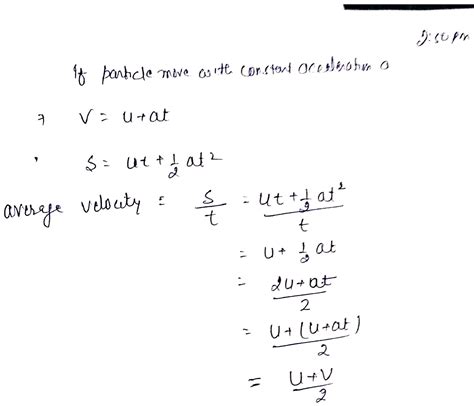 2:50 pm
If particle move with constant acceleration a
⇒ V = u+at
S = ut + 1/2 at²
average velocity = S/t = (ut + 1/2 at²)/t
= u + 1/2 at
= (2u+at)/2
= (u+(u+at))/2
= (u+v)/2